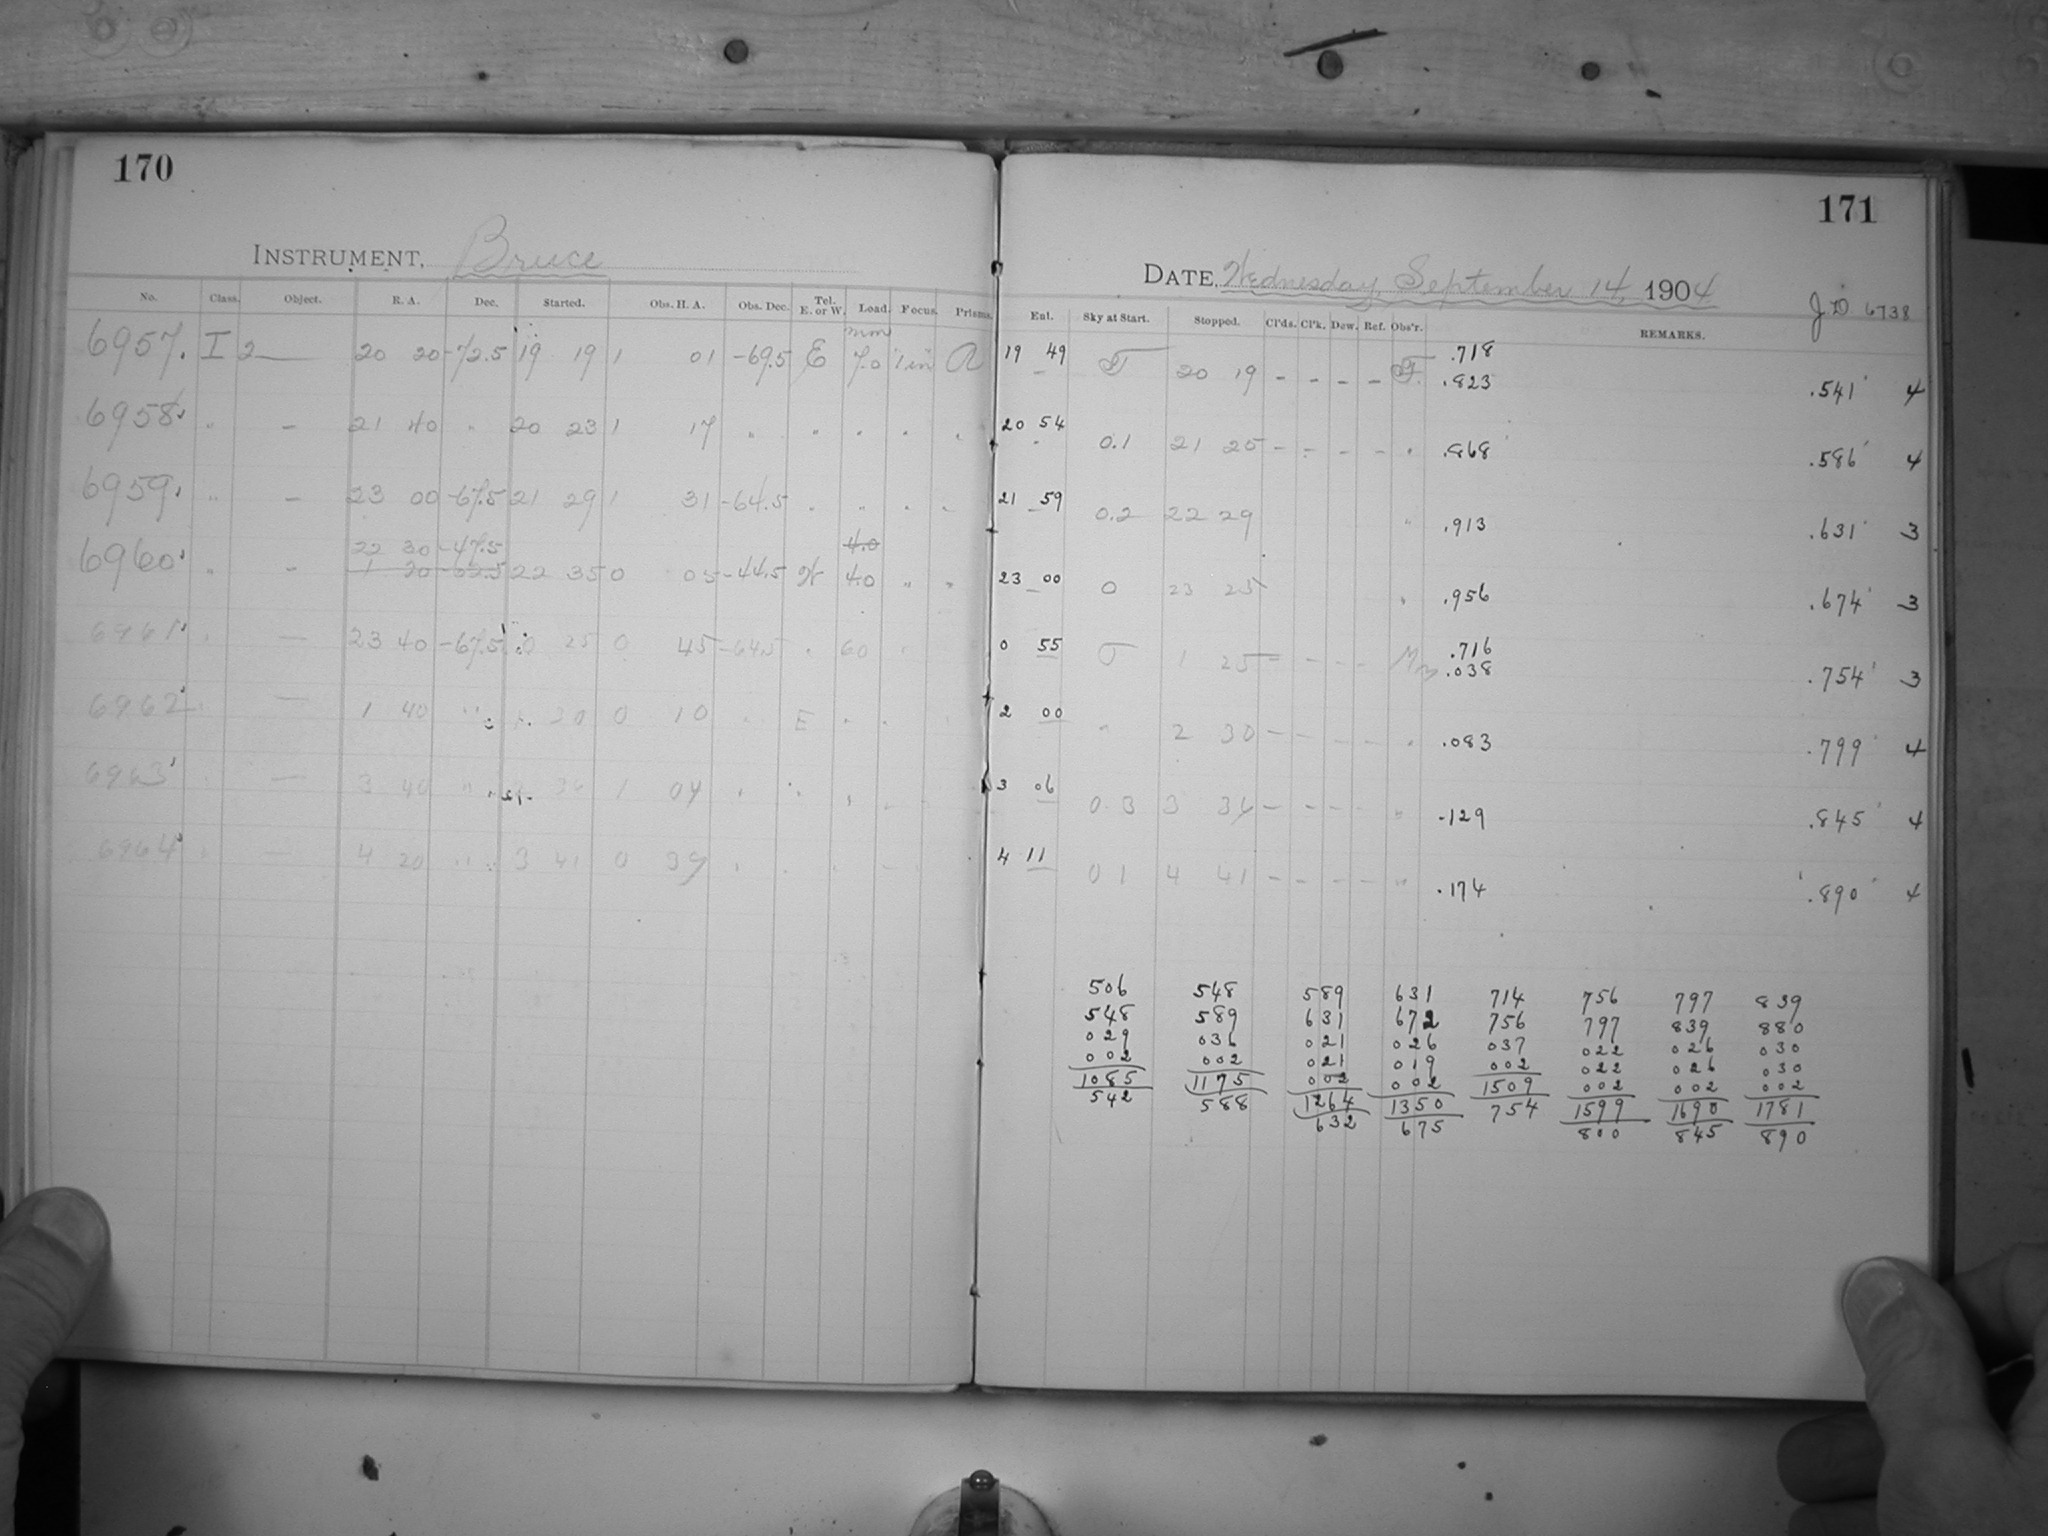 170
INSTRUMENT, Bruce
No. Class. Object. R. A. Dec. Started. Obs. H. A. Obs. Dec. Tel. E. or W. Load. Focus. Prisms.
mm
6957. I 2 20 20 -72.5 19 19 1 01 -69.5 E 7.0 1 in A
6958. " - 21 40 " 20 23 1 17 " " " " "
6959. " - 23 00 -67.5 21 29 1 31 -64.5 " " " "
22 30 -47.5 4.0
6960. " - 1 20 -62.5 22 35 0 05 -44.5 W 4.0 " "
6961. — 23 40 -67.5 0 25 0 45 -64.5 " 60
6962 — 1 40 " 1 30 0 10 " E "
6963 — 3 40 " 2 36 1 04 " "
6964 — 4 20 " 3 41 0 39
171
DATE, Wednesday, September 14, 1904
JD 6738
Eul. Sky at Start. Stopped. Cl'ds. Cl'k. Dew. Ref. Obs'r. REMARKS.
19 49 20 19 - - - - .718
.823 .541 4
20 54 0.1 21 25 - - - - " .868 .586 4
21 59 0.2 22 29 " .913 .631 3
23 00 0 23 25 " .956 .674 3
0 55 1 25 - - - - .716
.038 .754 3
2 00 " 2 30 - - - - " .083 .799 4
3 06 0.3 3 36 - - - - " .129 .845 4
4 11 0 1 4 41 - - - - " .174 .890 4
506 548 589 631 714 756 797 839
548 589 631 672 756 797 839 880
029 036 021 026 037 022 026 030
002 002 021 019 002 022 026 030
1085 1175 002 002 1509 002 002 002
542 588 1264 1350 754 1599 1690 1781
632 675 800 845 890